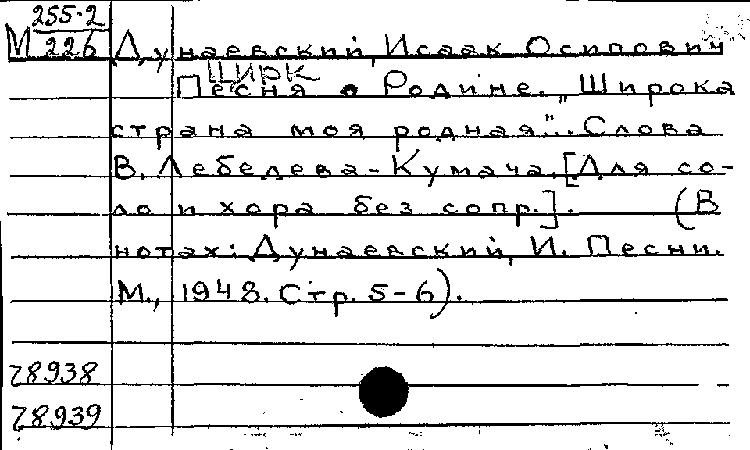 255·2
М 226 Дунаевский, Исаак Осипович
Цирк
Песня о Родине. „Широка
страна моя родная"... Слова
В. Лебедева-Кумача. [Для со-
ло и хора без сопр.]. (В
нотах: Дунаевский, И. Песни.
М., 1948. Стр. 5-6).
78938
78939